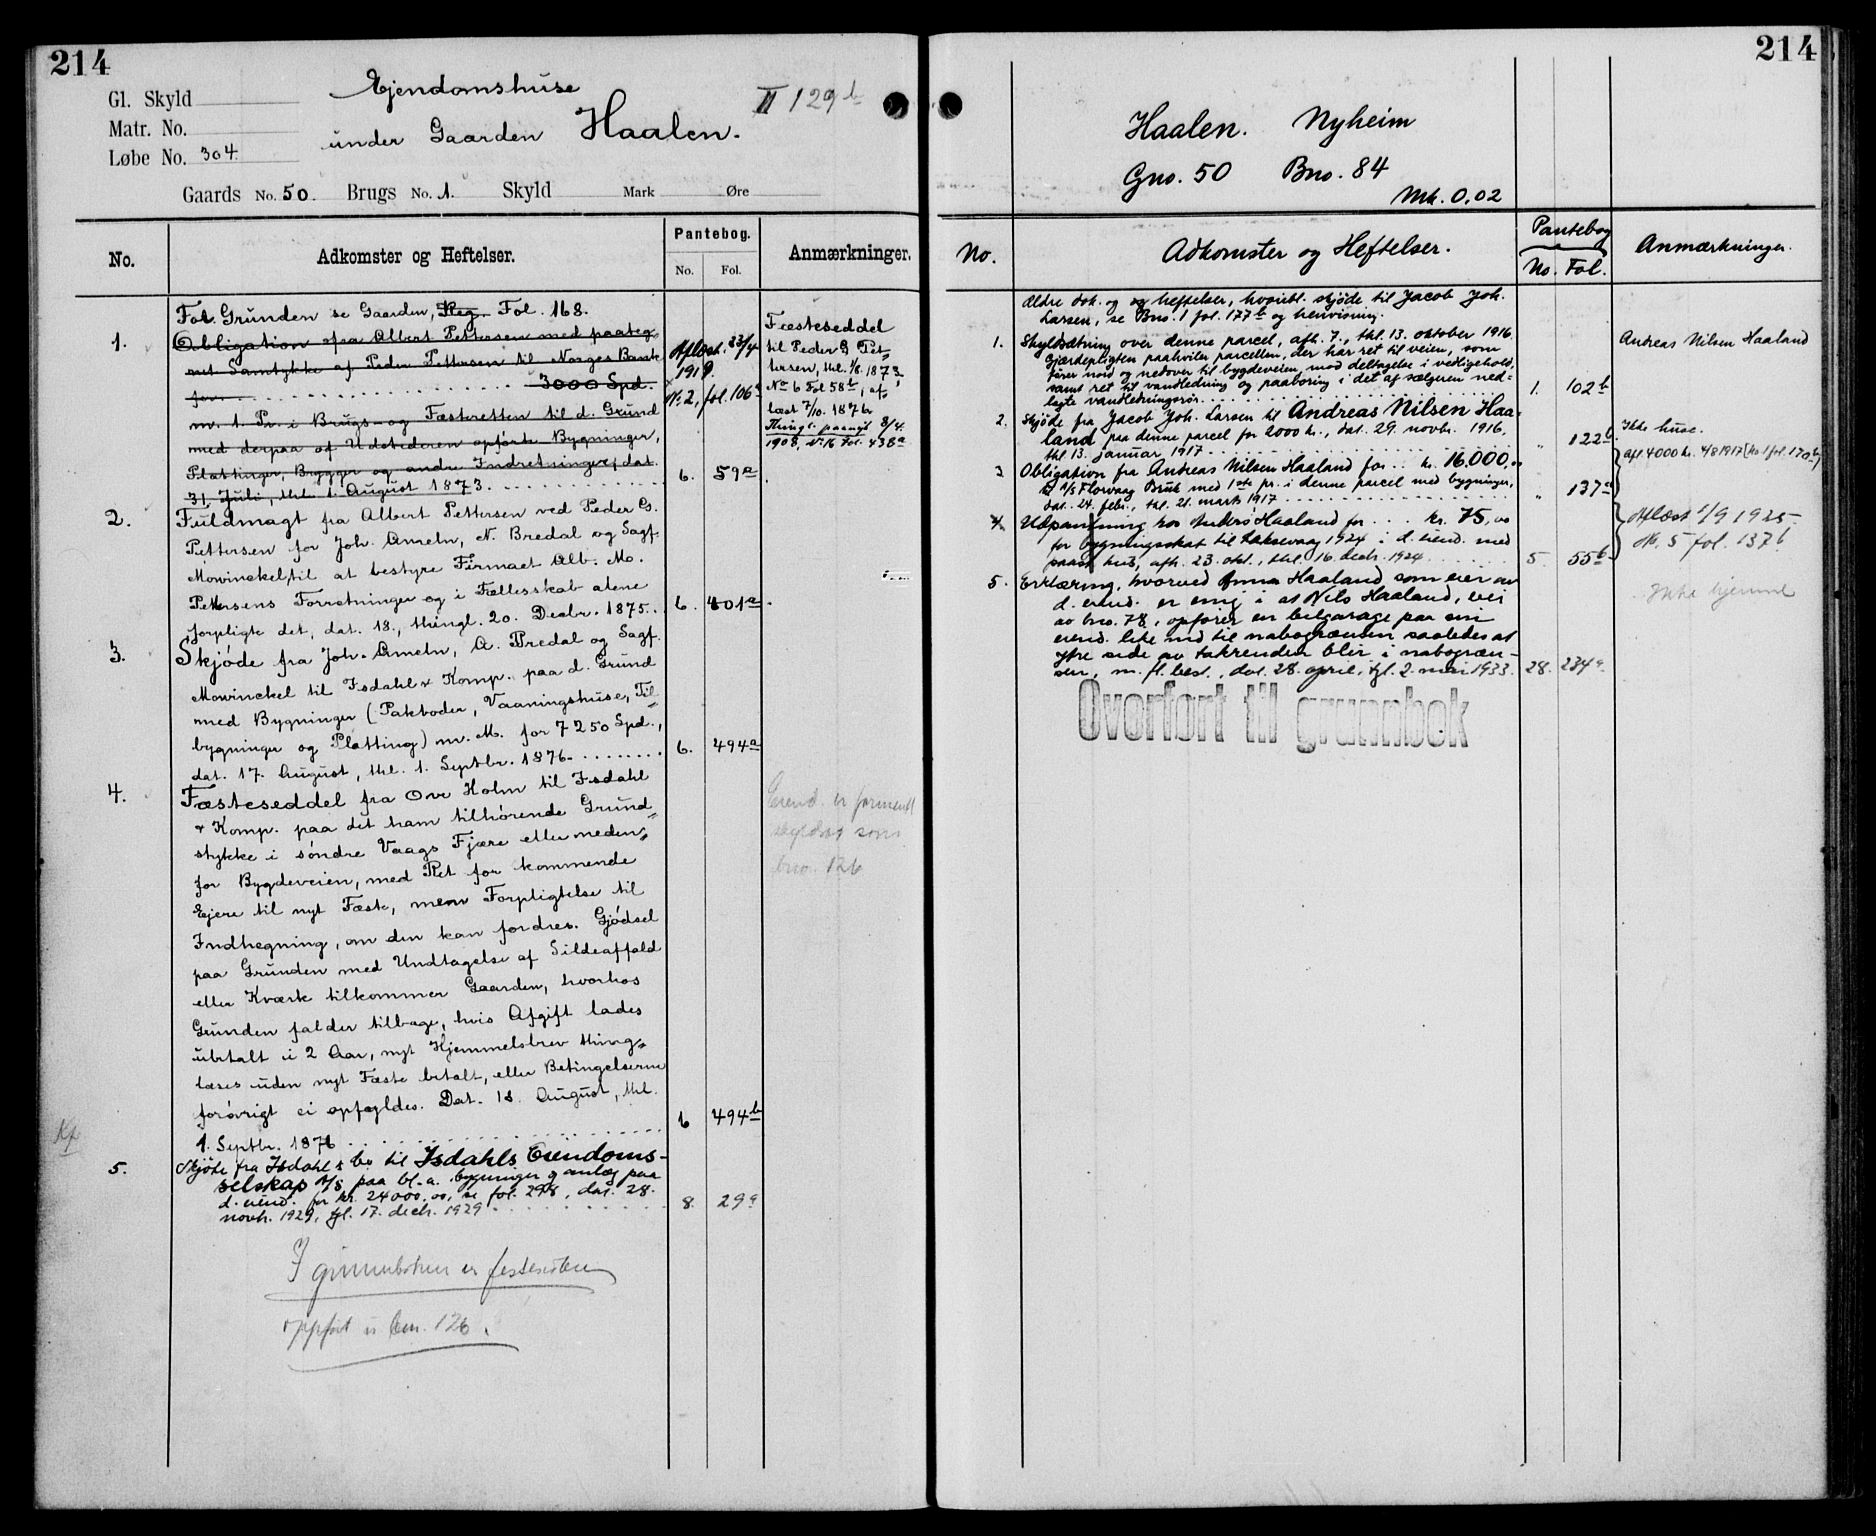 214
Gl. Skyld
Matr. No.
Løbe No. 304.
Ejendomshuse
under Gaarden Haalen.
II 129 b
Gaards No. 50. Brugs No. 1. Skyld Mark Øre
No.
Adkomster og Heftelser.
Pantebog.
No. Fol.
Anmærkninger.
Fol. Grunden se Gaarden, Reg. Fol. 168.
1. Obligation fra Albert Pettersen med paateg-
net Samtykke af Peder Pettersen til Norges Bank
for 3000 Spd.
m. 1. Pr. i Brugs- og Fæsteretten til d. Grund
med derpaa af Udstederen opførte Bygninger,
Plattinger, Brygger og andre Indretninger, dat.
31. Juli, thl. 1. August 1873. 6. 59a
Aflæst 23/4
1919.
No 2, fol. 106a
Fæsteseddel
til Peder G Pet-
tersen, thl. 1/8. 1873,
No 6 Fol 58b, af-
læst 7/10. 1876
Thingl. paany 8/4.
1908, No. 16 Fol. 438a
2. Fuldmagt fra Albert Pettersen ved Peder G.
Pettersen for Joh. Ameln, N. Bredal og Sagf.
Mowinckel, til at bestyre Firmaet Alb. M.
Pettersens Forretninger og i Fællesskab alene
forpligte det, dat. 18., thingl. 20. Decbr. 1875. 6. 401a
3. Skjøde fra Joh. Ameln, A. Bredal og Sagf.
Mowinckel til Isdahl & Komp. paa d. Grund
med Bygninger (Pakboder, Vaaningshuse, Til-
bygninger og Platting) m. M. for 7250 Spd.,
dat. 17. August, thl. 1. Septbr. 1876. 6. 494a
4. Fæsteseddel fra Ove Holm til Isdahl
& Komp. paa det ham tilhørende Grund-
stykke i søndre Vaags Fjære eller neden-
for Bygdeveien, med Ret for kommende
Ejere til nyt Fæste, men Forpligtelse til
Indhegning, om den kan fordres. Gjødsel
paa Grunden med Undtagelse af Sildeaffald
eller Kværk tilkommer Gaarden, hvorhos
Grunden falder tilbage, hvis Afgift lades
ubetalt i 2 Aar, nyt Hjemmelsbrev thing-
læses uden nyt Fæste betalt, eller Betingelserne
forøvrigt ei opfyldes. Dat. 18. August, thl.
1. Septbr. 1876 6 494b
Eiend. er forment
skyldsat som
bno. 126
5. Skjøte fra Isdahl & Co til Isdahls Eiendoms-
selskap A/S paa bl.a. bygninger og anlæg paa
d. eiend. for kr. 24000.00, se fol. 298, dat. 28.
novbr. 1929, tgl. 17. decbr. 1929 8. 29a
I grunnboken er festeretten
oppført u bnr. 126.
214
Haalen. Nyheim
Gno. 50 Bno. 84
Mk. 0,02
No.
Adkomster og Heftelser.
Pantebog
No. Fol.
Anmærkninger.
Ældre dok. og heftelser, hvoribl. skjøde til Jacob Joh.
Larsen, se Bno. 1 fol. 177b og henvisning.
1. Skyldsætning over denne parcel, afh. 7., thl. 13. oktober 1916.
Gjærdepligten paahviler parcellen, der har ret til veien, som
fører nord og nedover til bygdeveien, mod deltagelse i vedligehold,
samt ret til vandledning og paaboring i det af sælgeren ned-
lagte vandledningsrør. 1. 102b
Andreas Nilsen Haaland
2. Skjøde fra Jacob Joh. Larsen til Andreas Nilsen Haa-
land paa denne parcel for 2000 kr., dat. 29. novbr. 1916,
thl. 13. januar 1917 " 122b
Ikke huse.
3 Obligation fra Andreas Nilsen Haaland for kr. 16.000,00
til A/S Florvaag Bruk med 1ste pr. i denne parcel med bygninger,
dat. 24. febr., thl. 21. marts 1917 " 137a
afl. 4000 kr. 4/8 1917 [No 1 fol 170b]
Aflæst 1/9 1925
No. 5 fol. 137b
4 Utpantning hos Anders Haaland for kr. 75,00
for bygningsskat til Laksevaag 1924 i d. eiend. med
paast. hus, afh. 23. okt., thl. 16. decbr. 1924 5. 55b
5. Erklæring, hvorved Anna Haaland som eier av
d. eiend. er enig i at Nils Haaland, eier
av bno. 78, opfører en bilgarage paa sin
eiend. like ind til nabogrænsen saaledes at
ytre side av takrenden blir i nabogræn-
sen, m. fl. best., dat. 28. april, tgl. 2. mai 1933. 28. 234a.
Ikke hjemmel
Overført til grunnbok